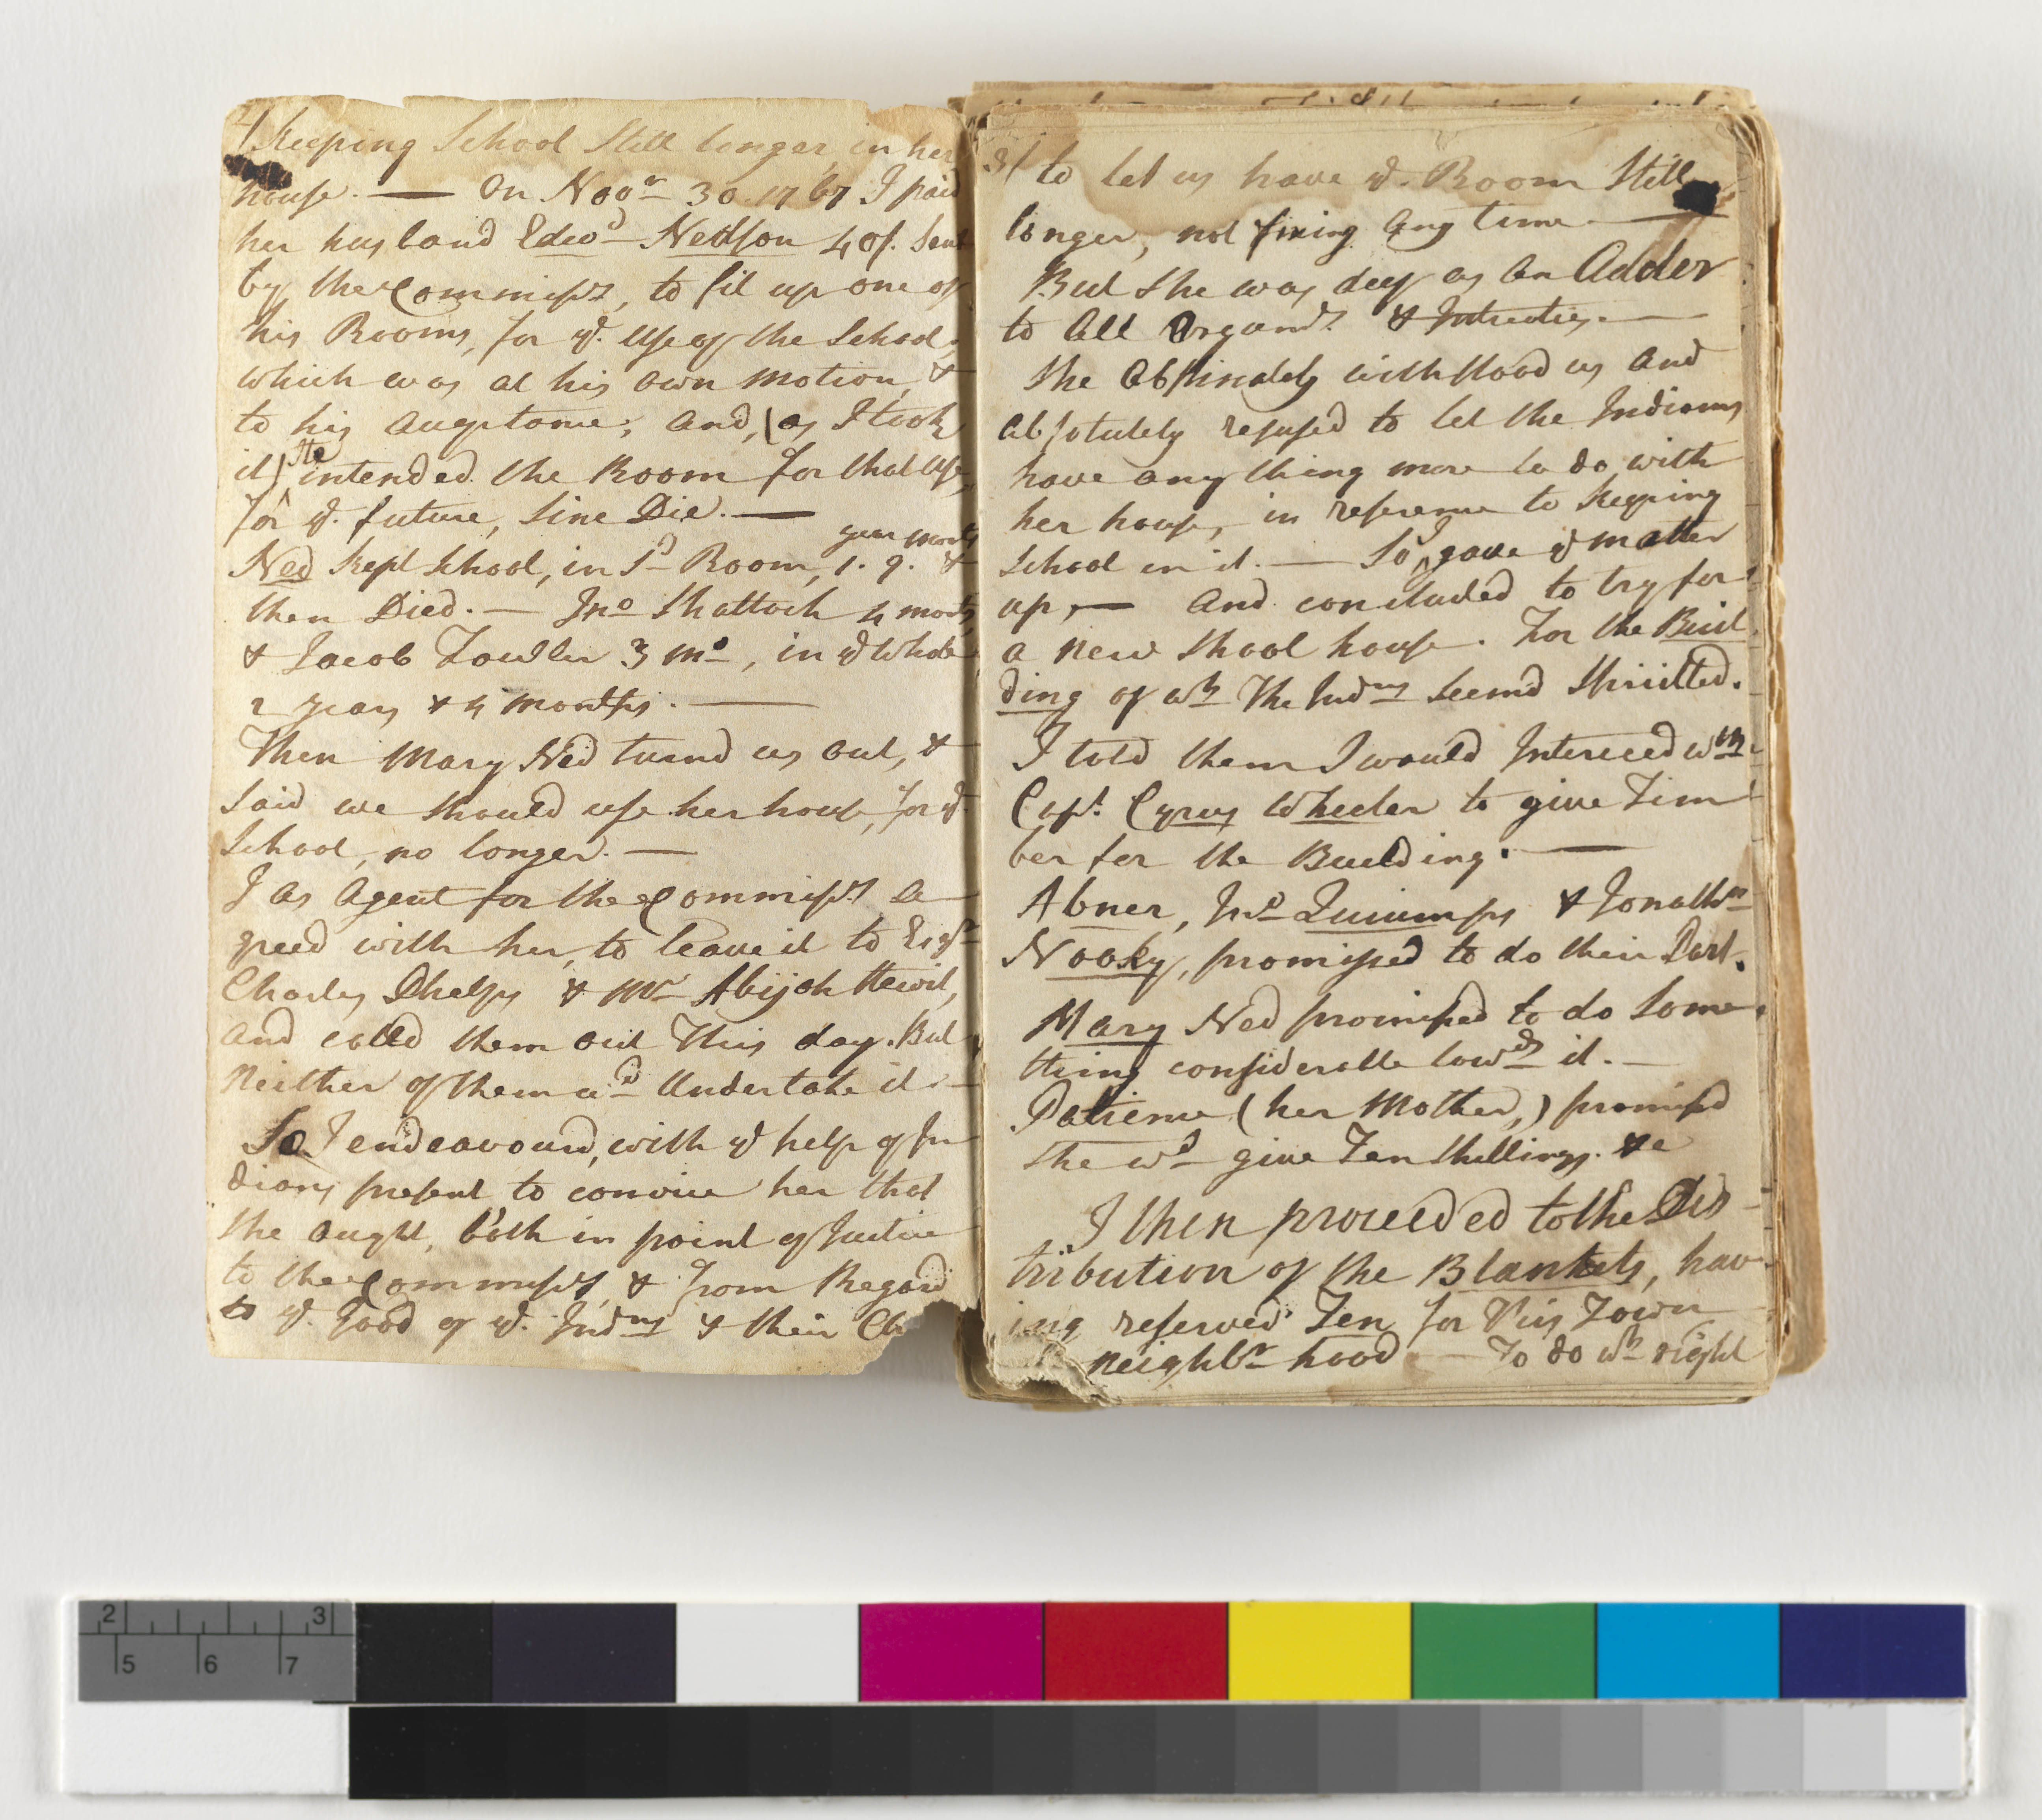 2/ Keeping School Still longer, in her
house. — On Novr 30. 1767 I paid
her husband Edwd Nedson 40s. Sent
by the Commissrs, to fit up one of
his Rooms, for ye. Use of the School,
which was at his own motion, &
to his Acceptance; and, (as I took
it) He intended the Room for that use,
for ye. future, Sine Die. —
Ned kept School, in sd Room, 1. year 9. months &
then Died. — Jno Shattock 4 months,
& Jacob Fowler 3 mo, in ye whole
2 years & 4 months. —
Then Mary Ned turnd us out, &
Said we Should use her house, for ye.
School, no longer. —
I as Agent for the Commissrs a-
greed with her, to leave it to Esqr
Charles Phelps & Mr Abijah Hewit,
and called them out This day. But
Neither of them wd Undertake it. —
So I endeavourd, with ye help of In
dians present, to convice her that
She ought, both in point of Justice
to the Commissrs, & from Regard
to ye. Good of ye. Indns & their Ch
3/ to let us have ye. Room Still
longer, not fixing any time. —
But She was deef as an Adder
to All Argumts & Intreaties. —
She Obstinately withstood us and
absolutely refused to let the Indians
have any thing more to do with
her house, in reference to keeping
School in it. — So, gave ye matter
up, — And concluded to try for
a new Shool house. For the Buil
ding of wh The Indns Seemd Spirited.
I told them I would Interceed wth
Capt. Cyrus Wheeler to give Tim
ber for the Building. —
Abner, Jno Quiumps & Jonathn
Nooky, promised to do their Part.
Mary Ned promised to do Some
thing considerable towds it. —
Patience (her Mother,) promised
She wd give Ten Shillings. &c
I then proceeded to the Dis-
tribution of the Blankets, hav
ing reserved Ten for This Town
neighbr hood — To do wh right